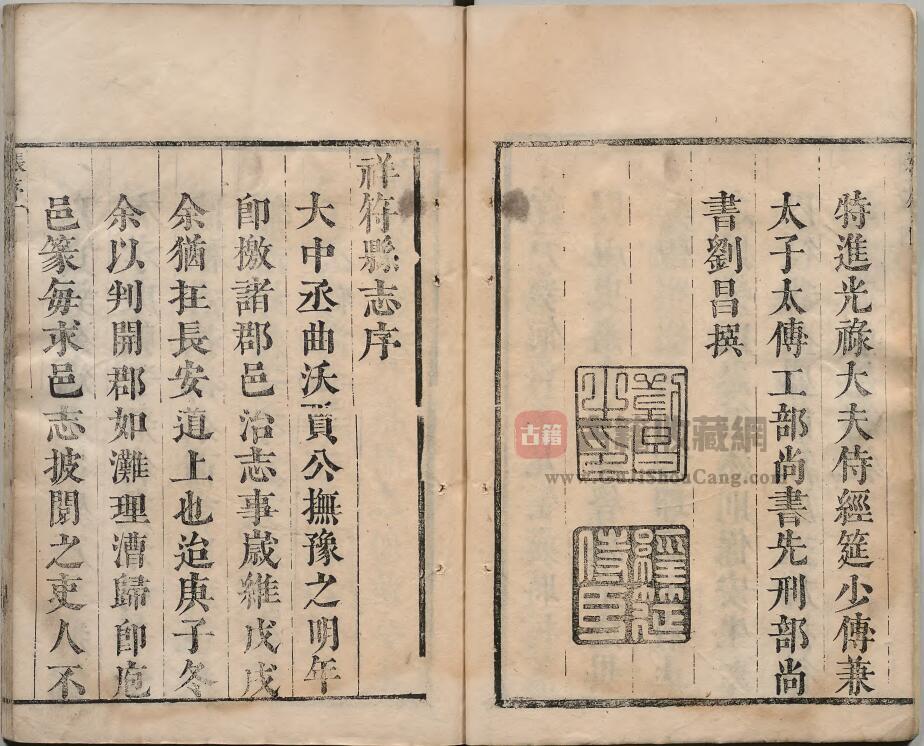 特進光祿大夫侍經筵少傅兼
太子太傅工部尚書先刑部尚
書劉昌撰
劉昌之印
經筵侍臣
古籍
藏網
祥符縣志序
大中丞曲沃賈公撫豫之明年
即檄諸郡邑治志事歲維戊戌
余猶在長安道上也迨庚子冬
余以判開郡如灘理漕歸即庖
邑篆每求邑志披閱之吏人不